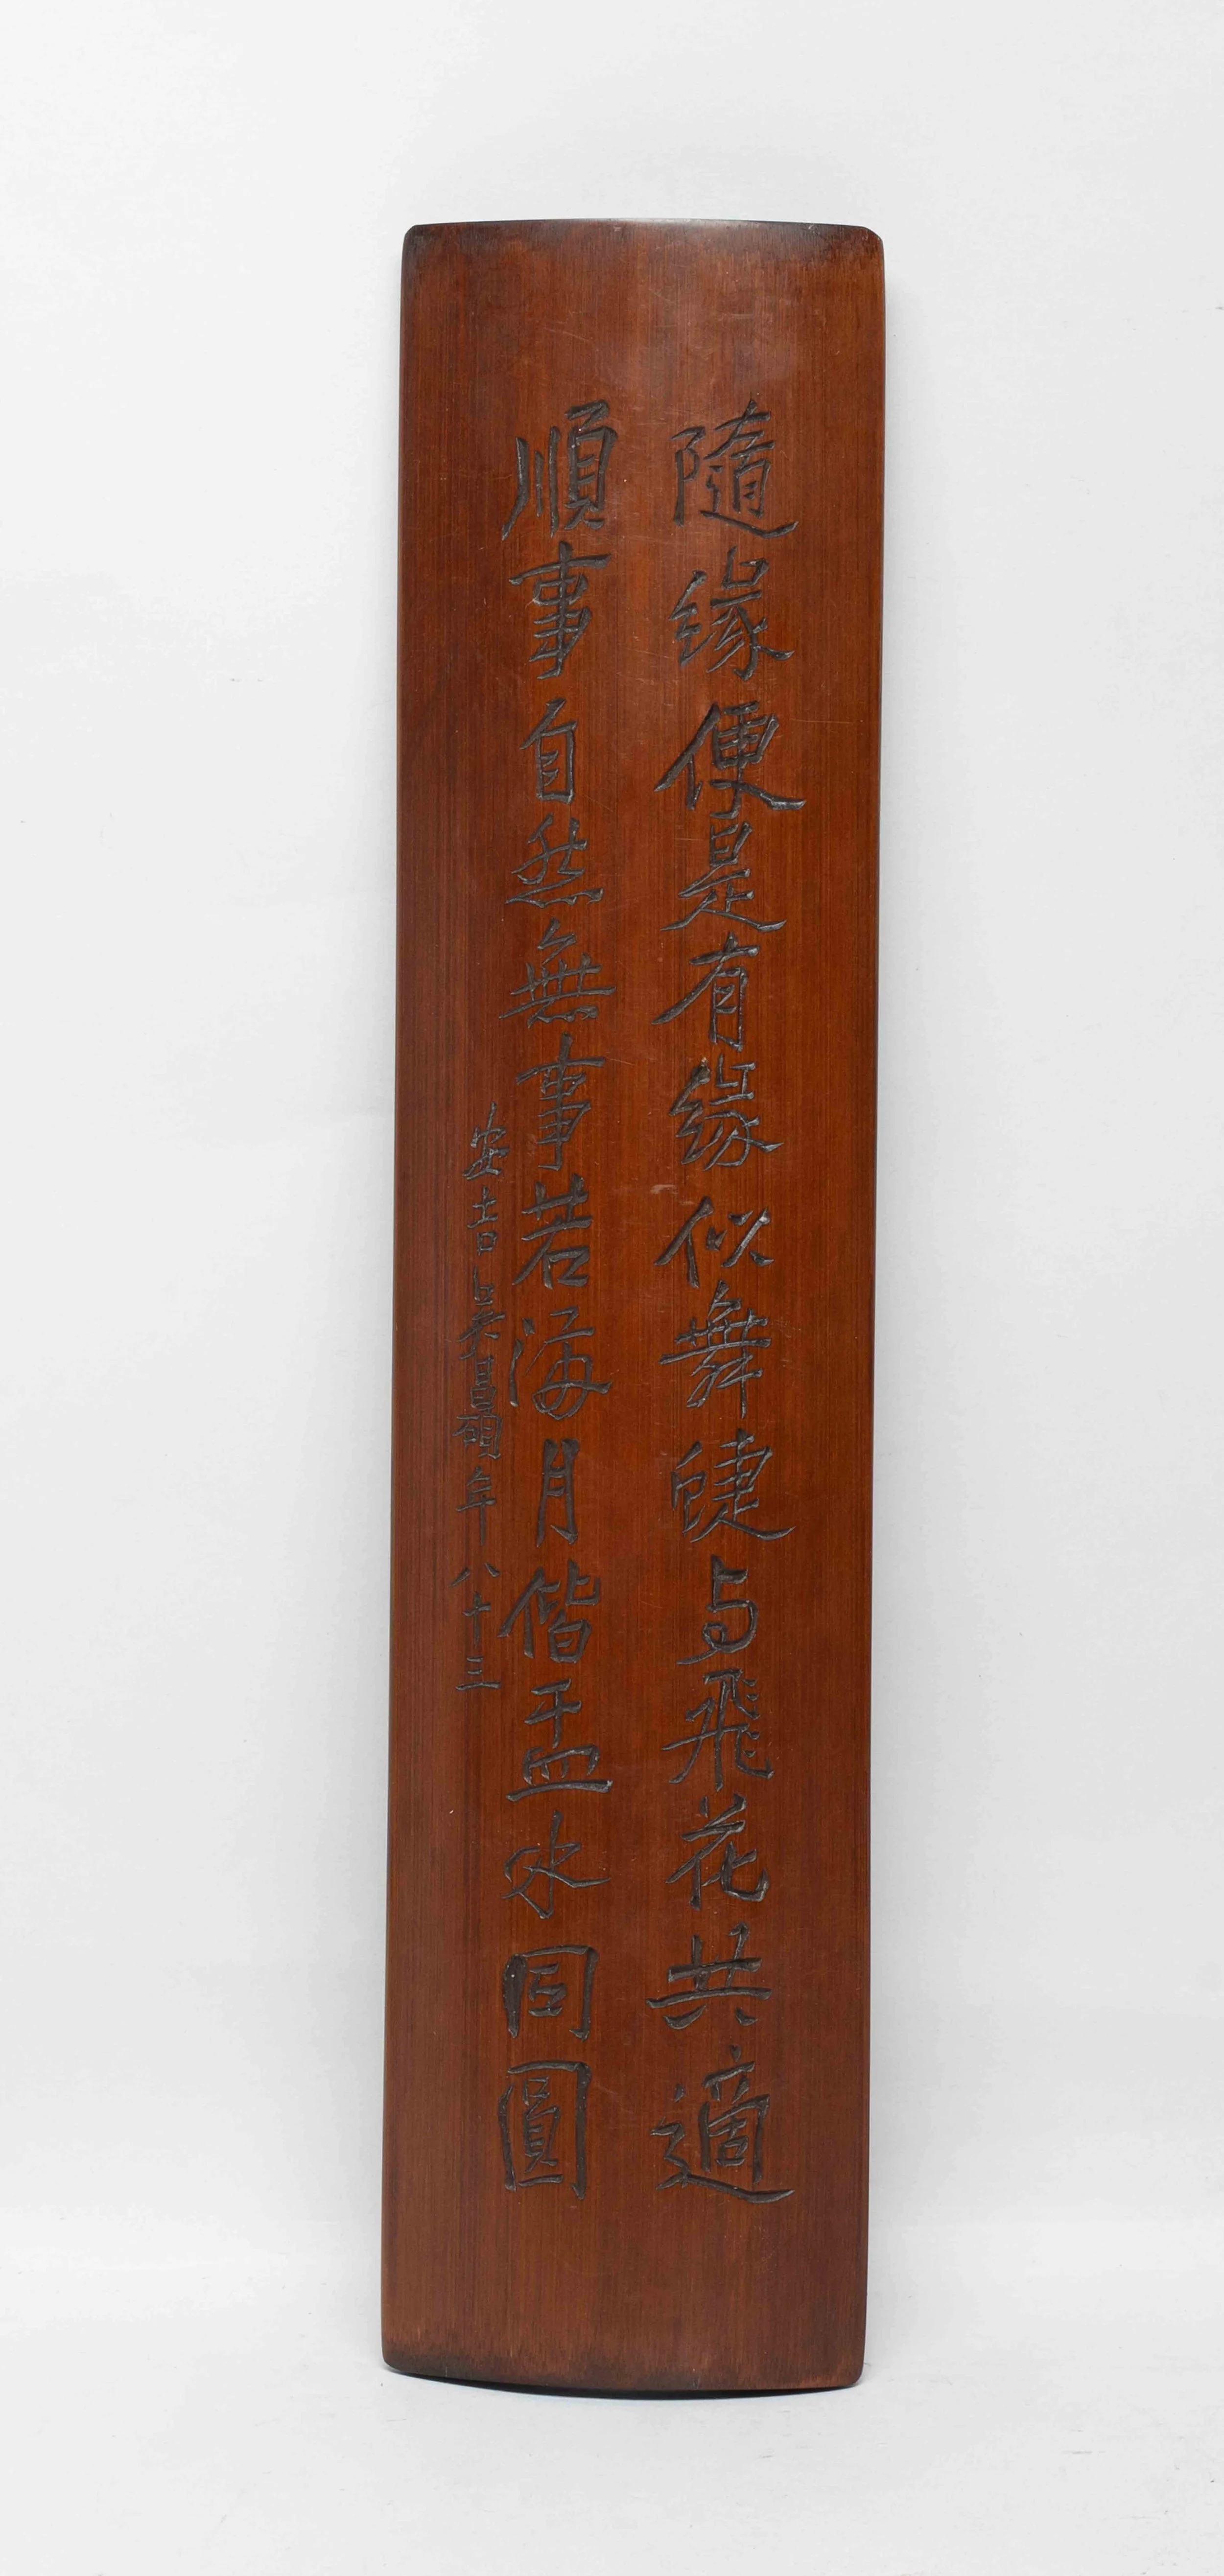 隨緣便是有緣似舞蜨与飛花共適
順事自然無事若海月偕盂水同圓
安吉吳昌碩年八十三